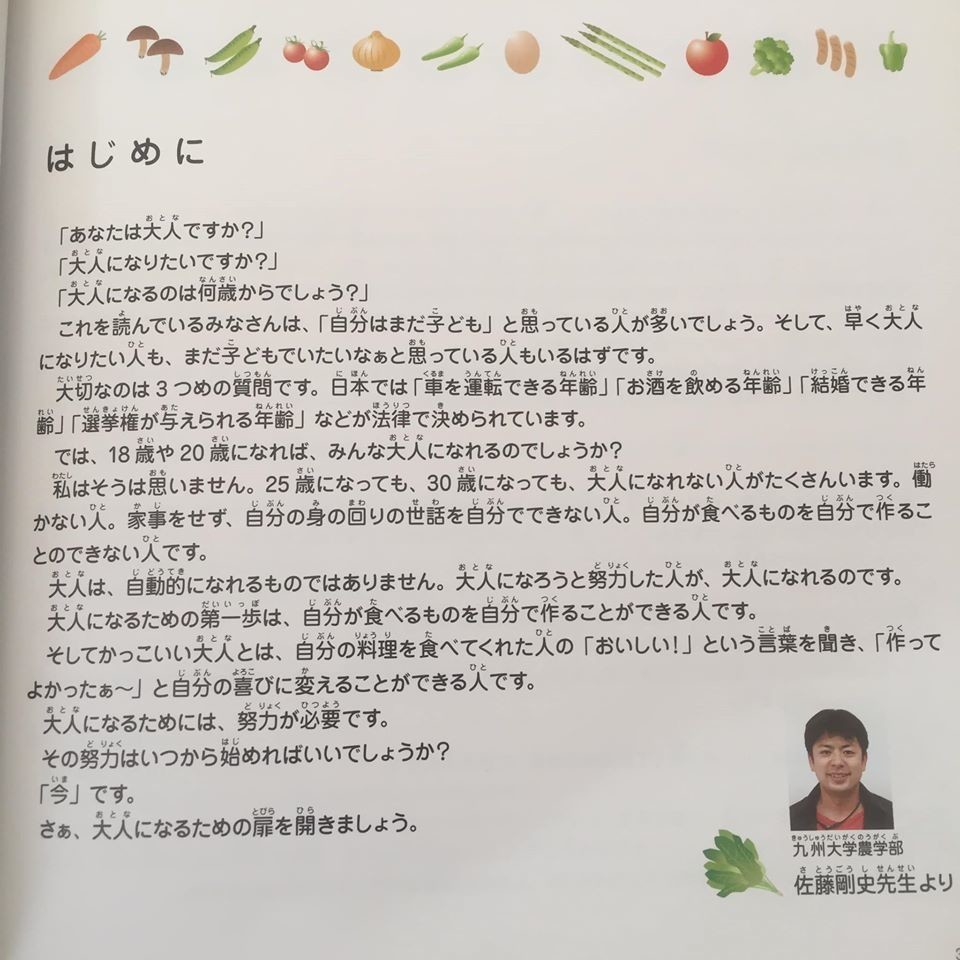 はじめに
「あなたは大人ですか?」
「大人になりたいですか?」
「大人になるのは何歳からでしょう?」
これを読んでいるみなさんは、「自分はまだ子ども」と思っている人が多いでしょう。そして、早く大人
になりたい人も、まだ子どもでいたいなぁと思っている人もいるはずです。
大切なのは3つめの質問です。日本では「車を運転できる年齢」「お酒を飲める年齢」「結婚できる年
齢」「選挙権が与えられる年齢」などが法律で決められています。
では、18歳や20歳になれば、みんな大人になれるのでしょうか?
私はそうは思いません。25歳になっても、30歳になっても、大人になれない人がたくさんいます。働
かない人。家事をせず、自分の身の回りの世話を自分でできない人。自分が食べるものを自分で作るこ
とのできない人です。
大人は、自動的になれるものではありません。大人になろうと努力した人が、大人になれるのです。
大人になるための第一歩は、自分が食べるものを自分で作ることができる人です。
そしてかっこいい大人とは、自分の料理を食べてくれた人の「おいしい!」という言葉を聞き、「作って
よかったぁ〜」と自分の喜びに変えることができる人です。
大人になるためには、努力が必要です。
その努力はいつから始めればいいでしょうか?
「今」です。
さぁ、大人になるための扉を開きましょう。
九州大学農学部
佐藤剛史先生より